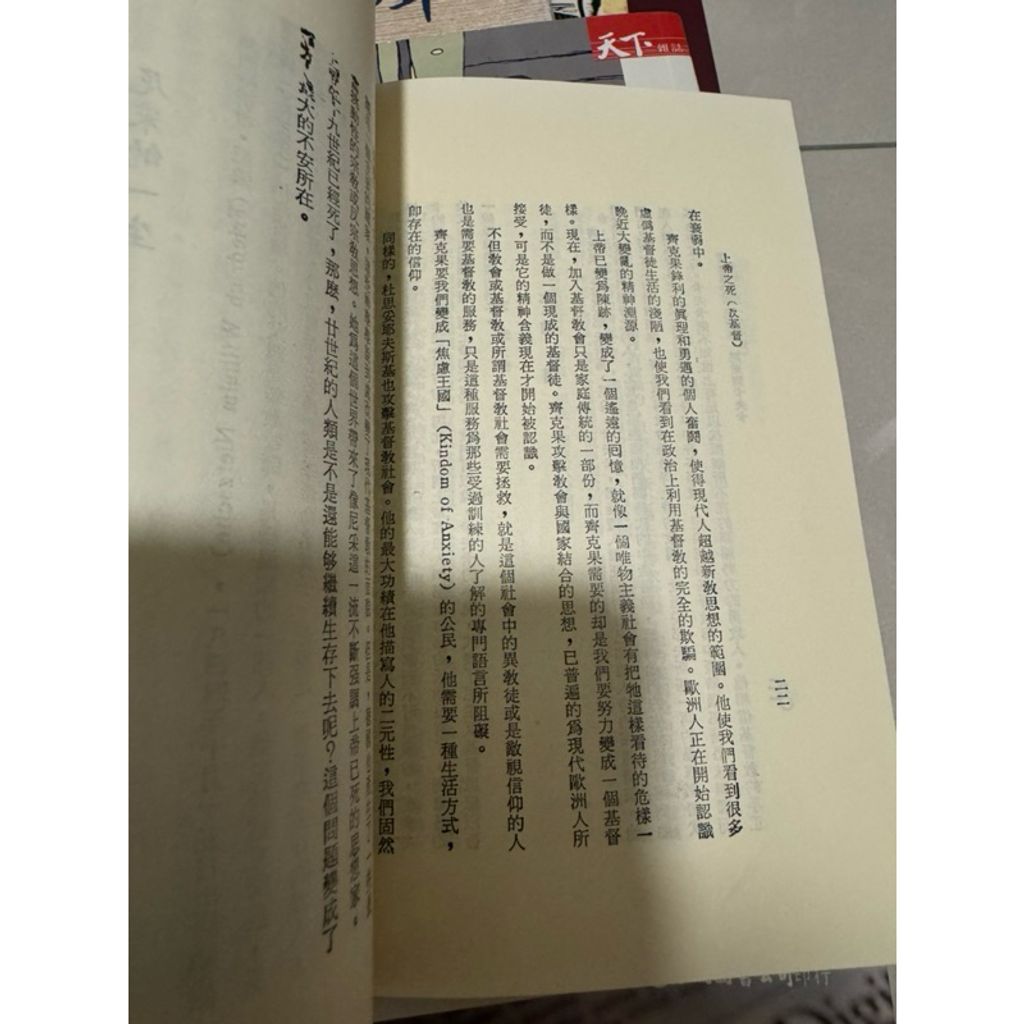 天下 雜誌
上帝之死(反基督)
二二
在衰弱中。
齊克果鋒利的眞理和勇邁的個人奮鬪,使得現代人超越新敎思想的範圍。他使我們看到很多
虛僞基督徒生活的淺陋,也使我們看到在政治上利用基督敎的完全的欺騙。歐洲人正在開始認識
晩近大變亂的精神淵源。
上帝已變爲陳跡,變成了一個遙遠的回憶,就像一個唯物主義社會有把牠這樣看待的危樣一
樣。現在,加入基督敎會只是家庭傳統的一部份,而齊克果需要的却是我們要努力變成一個基督
徒,而不是做一個現成的基督徒。齊克果攻擊敎會與國家結合的思想,已普遍的爲現代歐洲人所
接受,可是它的精神含義現在才開始被認識。
不但敎會或基督敎或所謂基督敎社會需要拯救,就是這個社會中的異敎徒或是敵視信仰的人
也是需要基督敎的服務,只是這種服務爲那些受過訓練的人了解的專門語言所阻礙。
齊克果要我們變成「焦慮王國」(Kindom of Anxiety)的公民,他需要一種生活方式,
卽存在的信仰。
同樣的,杜思妥耶夫斯基也攻擊基督敎社會。他的最大功績在他描寫人的二元性,我們固然
宗敎思想。她爲這個世界帶來了像尼采這一流不斷强調上帝已死的思想家。
十九世紀已經死了,那麽,廿世紀的人類是不是還能够繼續生存下去呢?這個問題變成了
最大的不安所在。